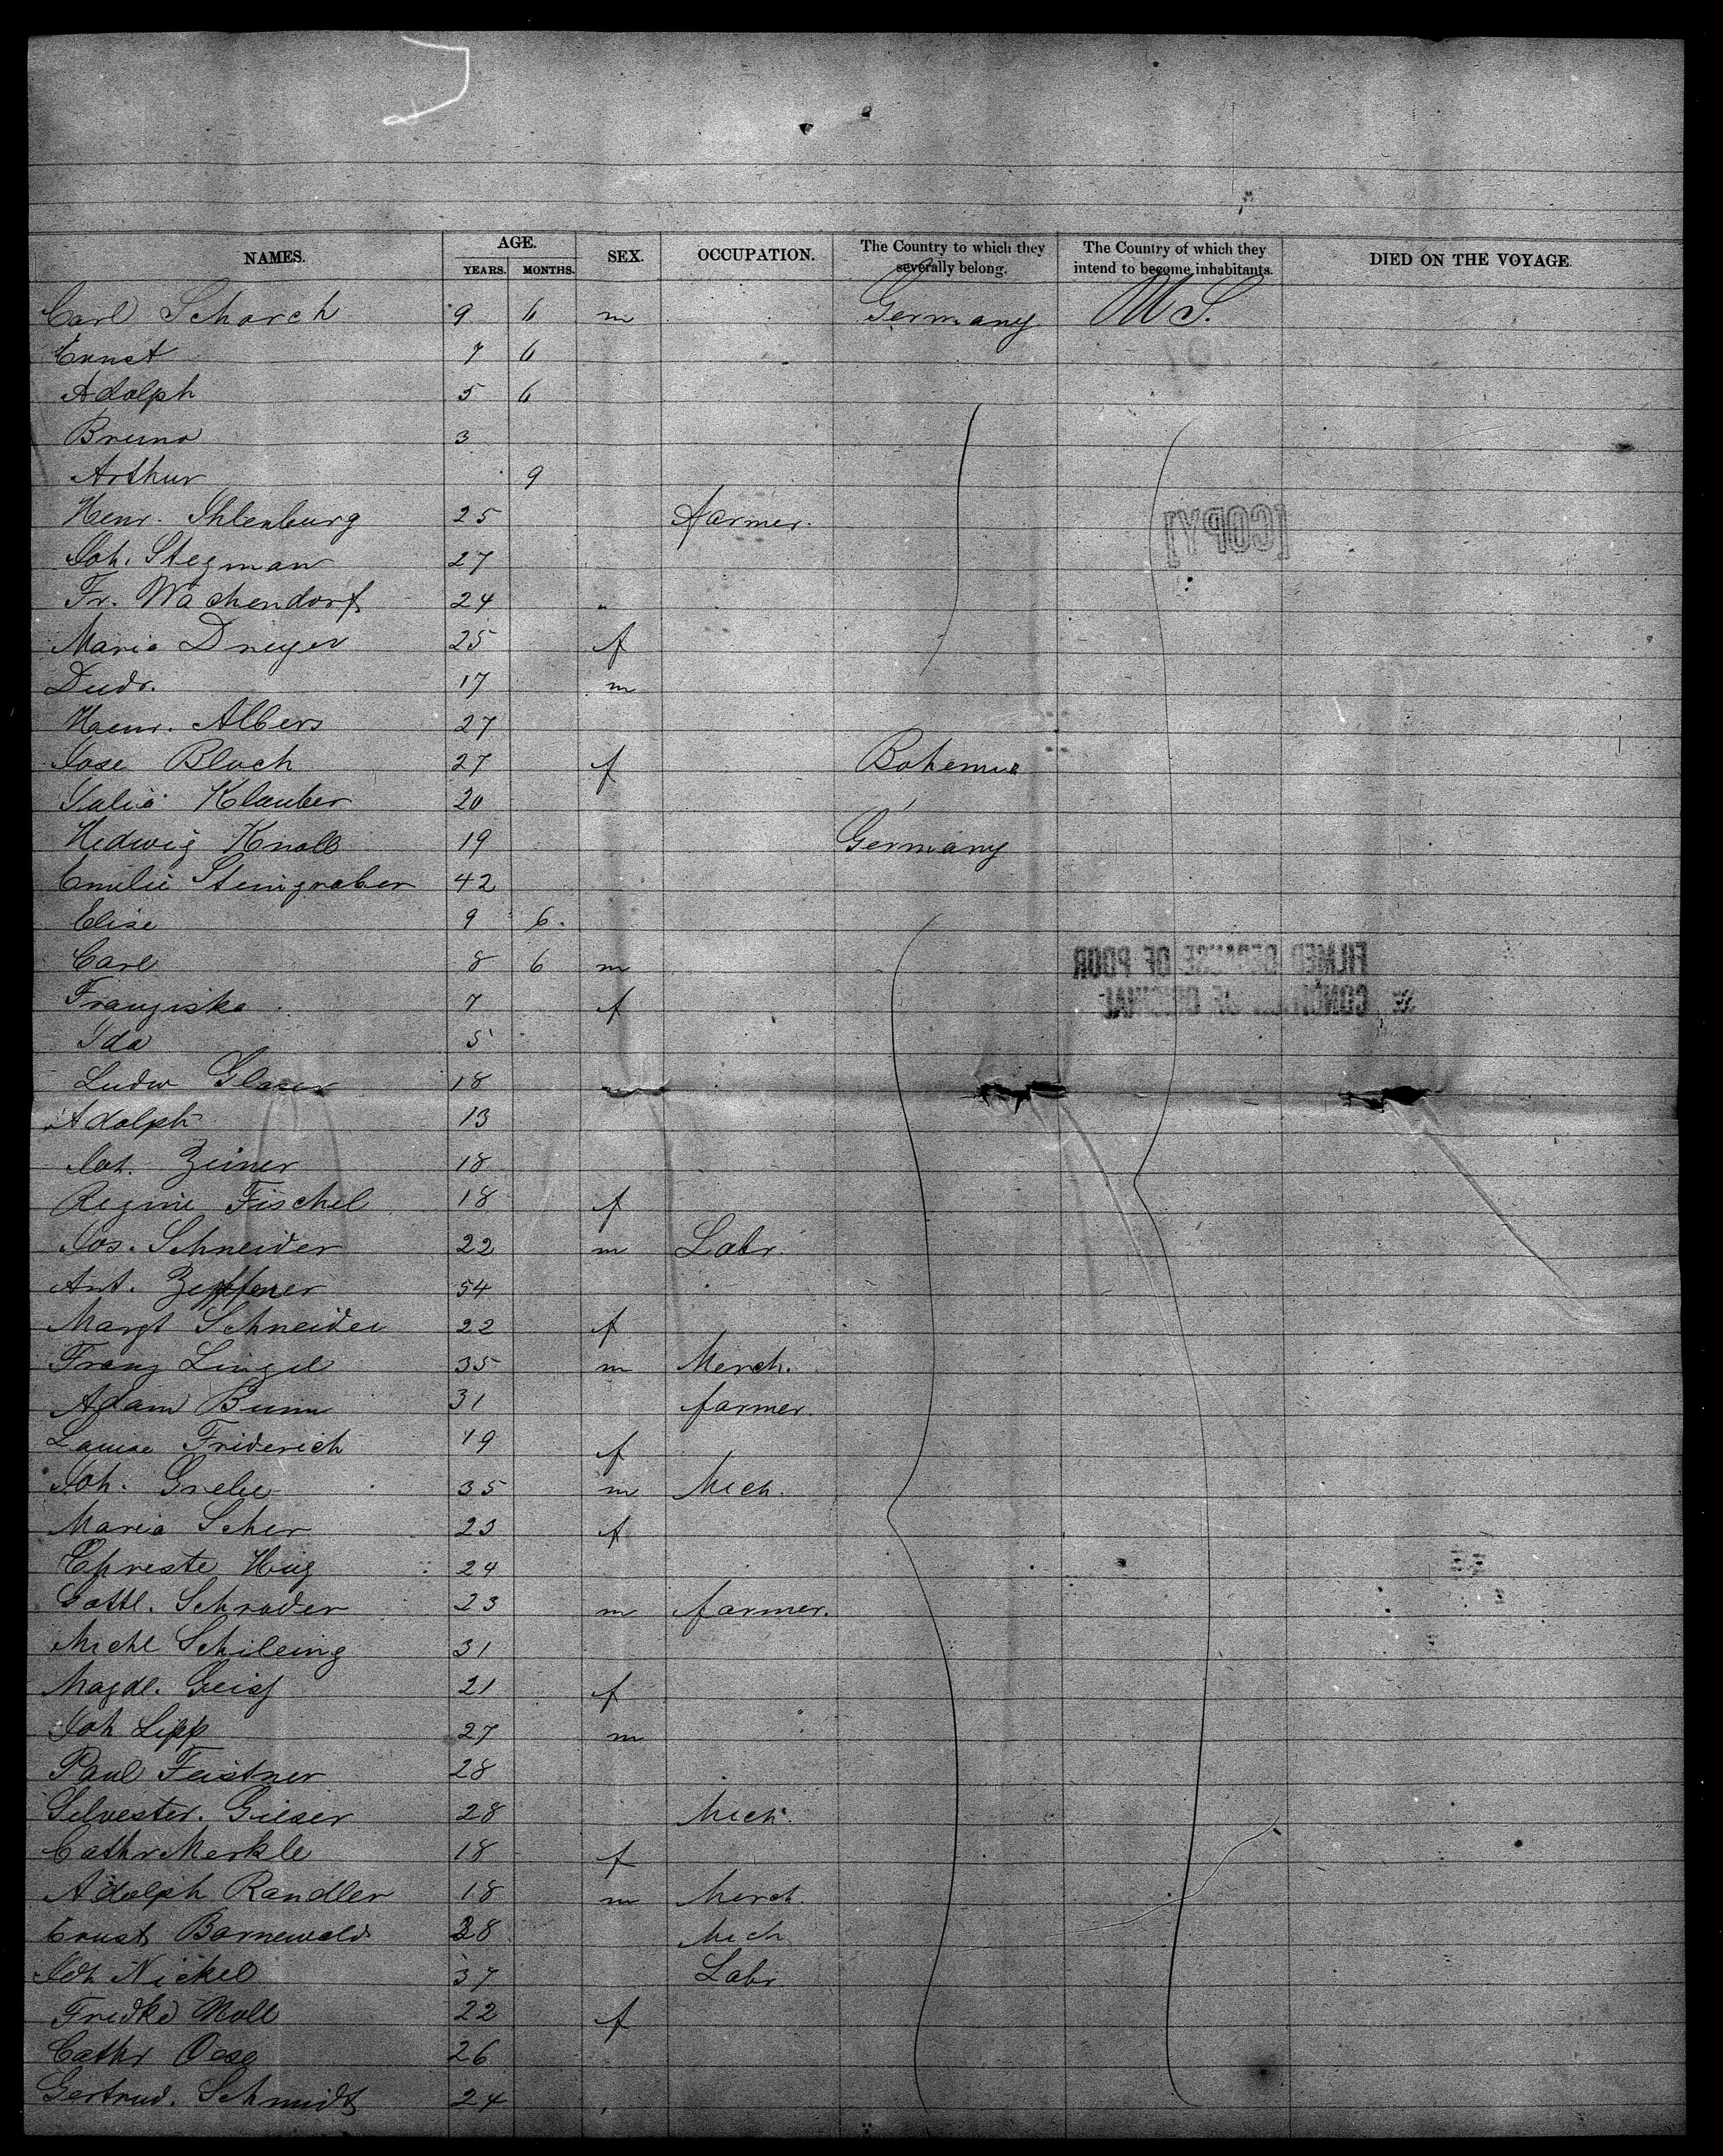 NAMES. AGE. YEARS. MONTHS. SEX. OCCUPATION. The Country to which they severally belong. The Country of which they intend to become inhabitants. DIED ON THE VOYAGE
Carl Schorch 9 6 m Germany U S.
Ernst 7 6
Adolph 5 6
Bruno 3
Arthur 9
Henr. Ihlenburg 25 farmer.
Joh. Stegman 27
Fr. Wachendorf 24 "
Maria Dreyer 25 f
Diedr. 17 m
Henr. Albers 27
Jose Bloch 27 f Bohemia
Julia Klauber 20
Hedwig Knoll 19 Germany
Emilie Steingraber 42
Elise 9 6.
Carl 8 6 m
Franziska 7 f
Ida 5
Ludw Glaser 18 m
Adolph 13
Joh. Zeiner 18
Regine Fischel 18 f
Jos. Schneider 22 m Labr.
Ant. 54
Margt Schneider 22 f
Franz Lingel 35 m Merch.
Adam Bumm 31 farmer.
Louise Friderich 19 f
Joh. Grebe 35 m Mech.
Maria Scher 23 f
Hug 24
Gottl. Schrader 23 m farmer.
Michl Schileing 31
Magdl. Geiss 21 f
Joh Lipp 27 m
Paul Feistner 28
Silvester. Gieser 28 Mech.
Cathr Merkle 18 f
Adolph Randler 18 m Merch.
Ernst Bornewald 38 Mech
Joh Nickel 37 Labr
Fredke Moll 22 f
Cathr Oese 26
Gertrud. Schmidt 24
[COPY]
FILMED BECAUSE OF POOR
CONDITION OF ORIGINAL